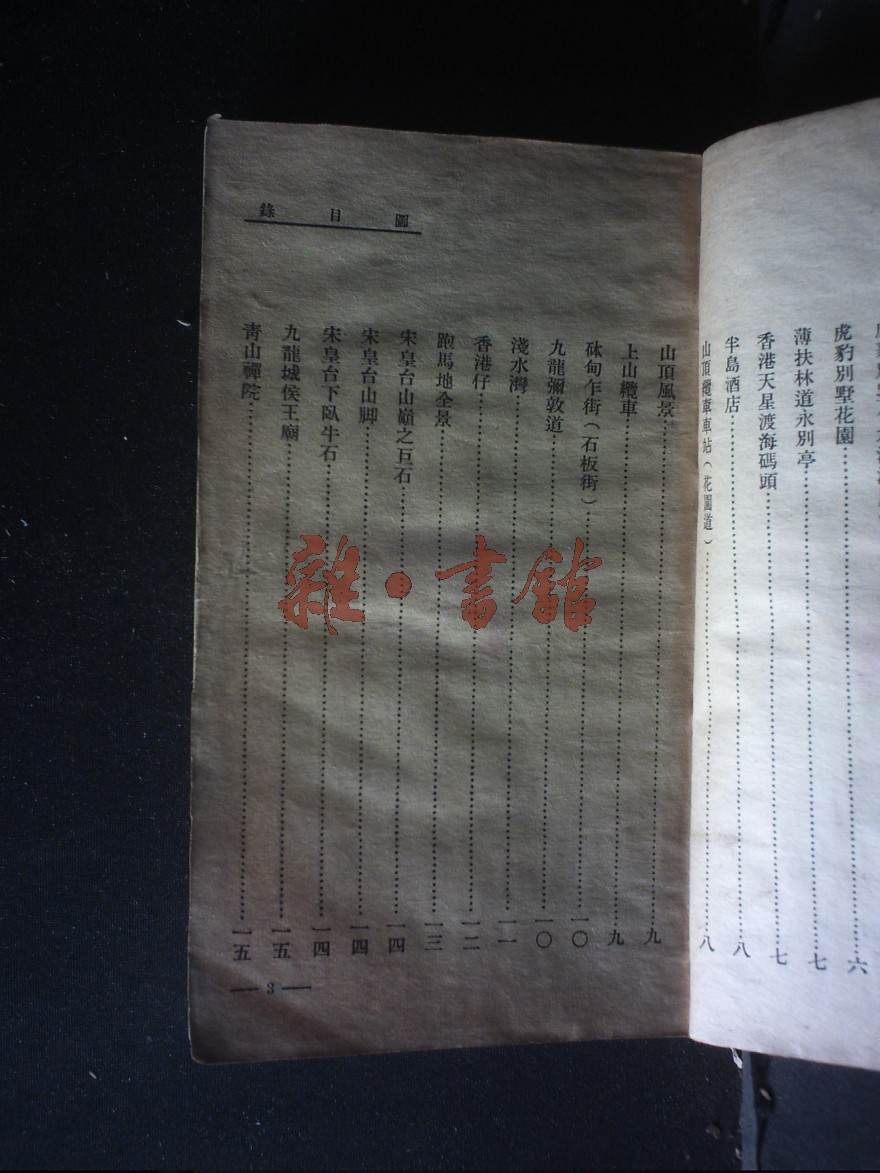 虎豹別墅花園……六
薄扶林道永別亭……七
香港天星渡海碼頭……七
半島酒店……八
山頂纜車車站(花園道)……八
圖目錄
山頂風景……九
上山纜車……九
砵甸乍街(石板街)……一〇
九龍彌敦道……一〇
淺水灣……一一
香港仔……一二
跑馬地全景……一三
宋皇台山巔之巨石……一四
宋皇台山脚……一四
宋皇台下臥牛石……一四
九龍城侯王廟……一五
靑山禪院……一五
— 3 —
雜·書館